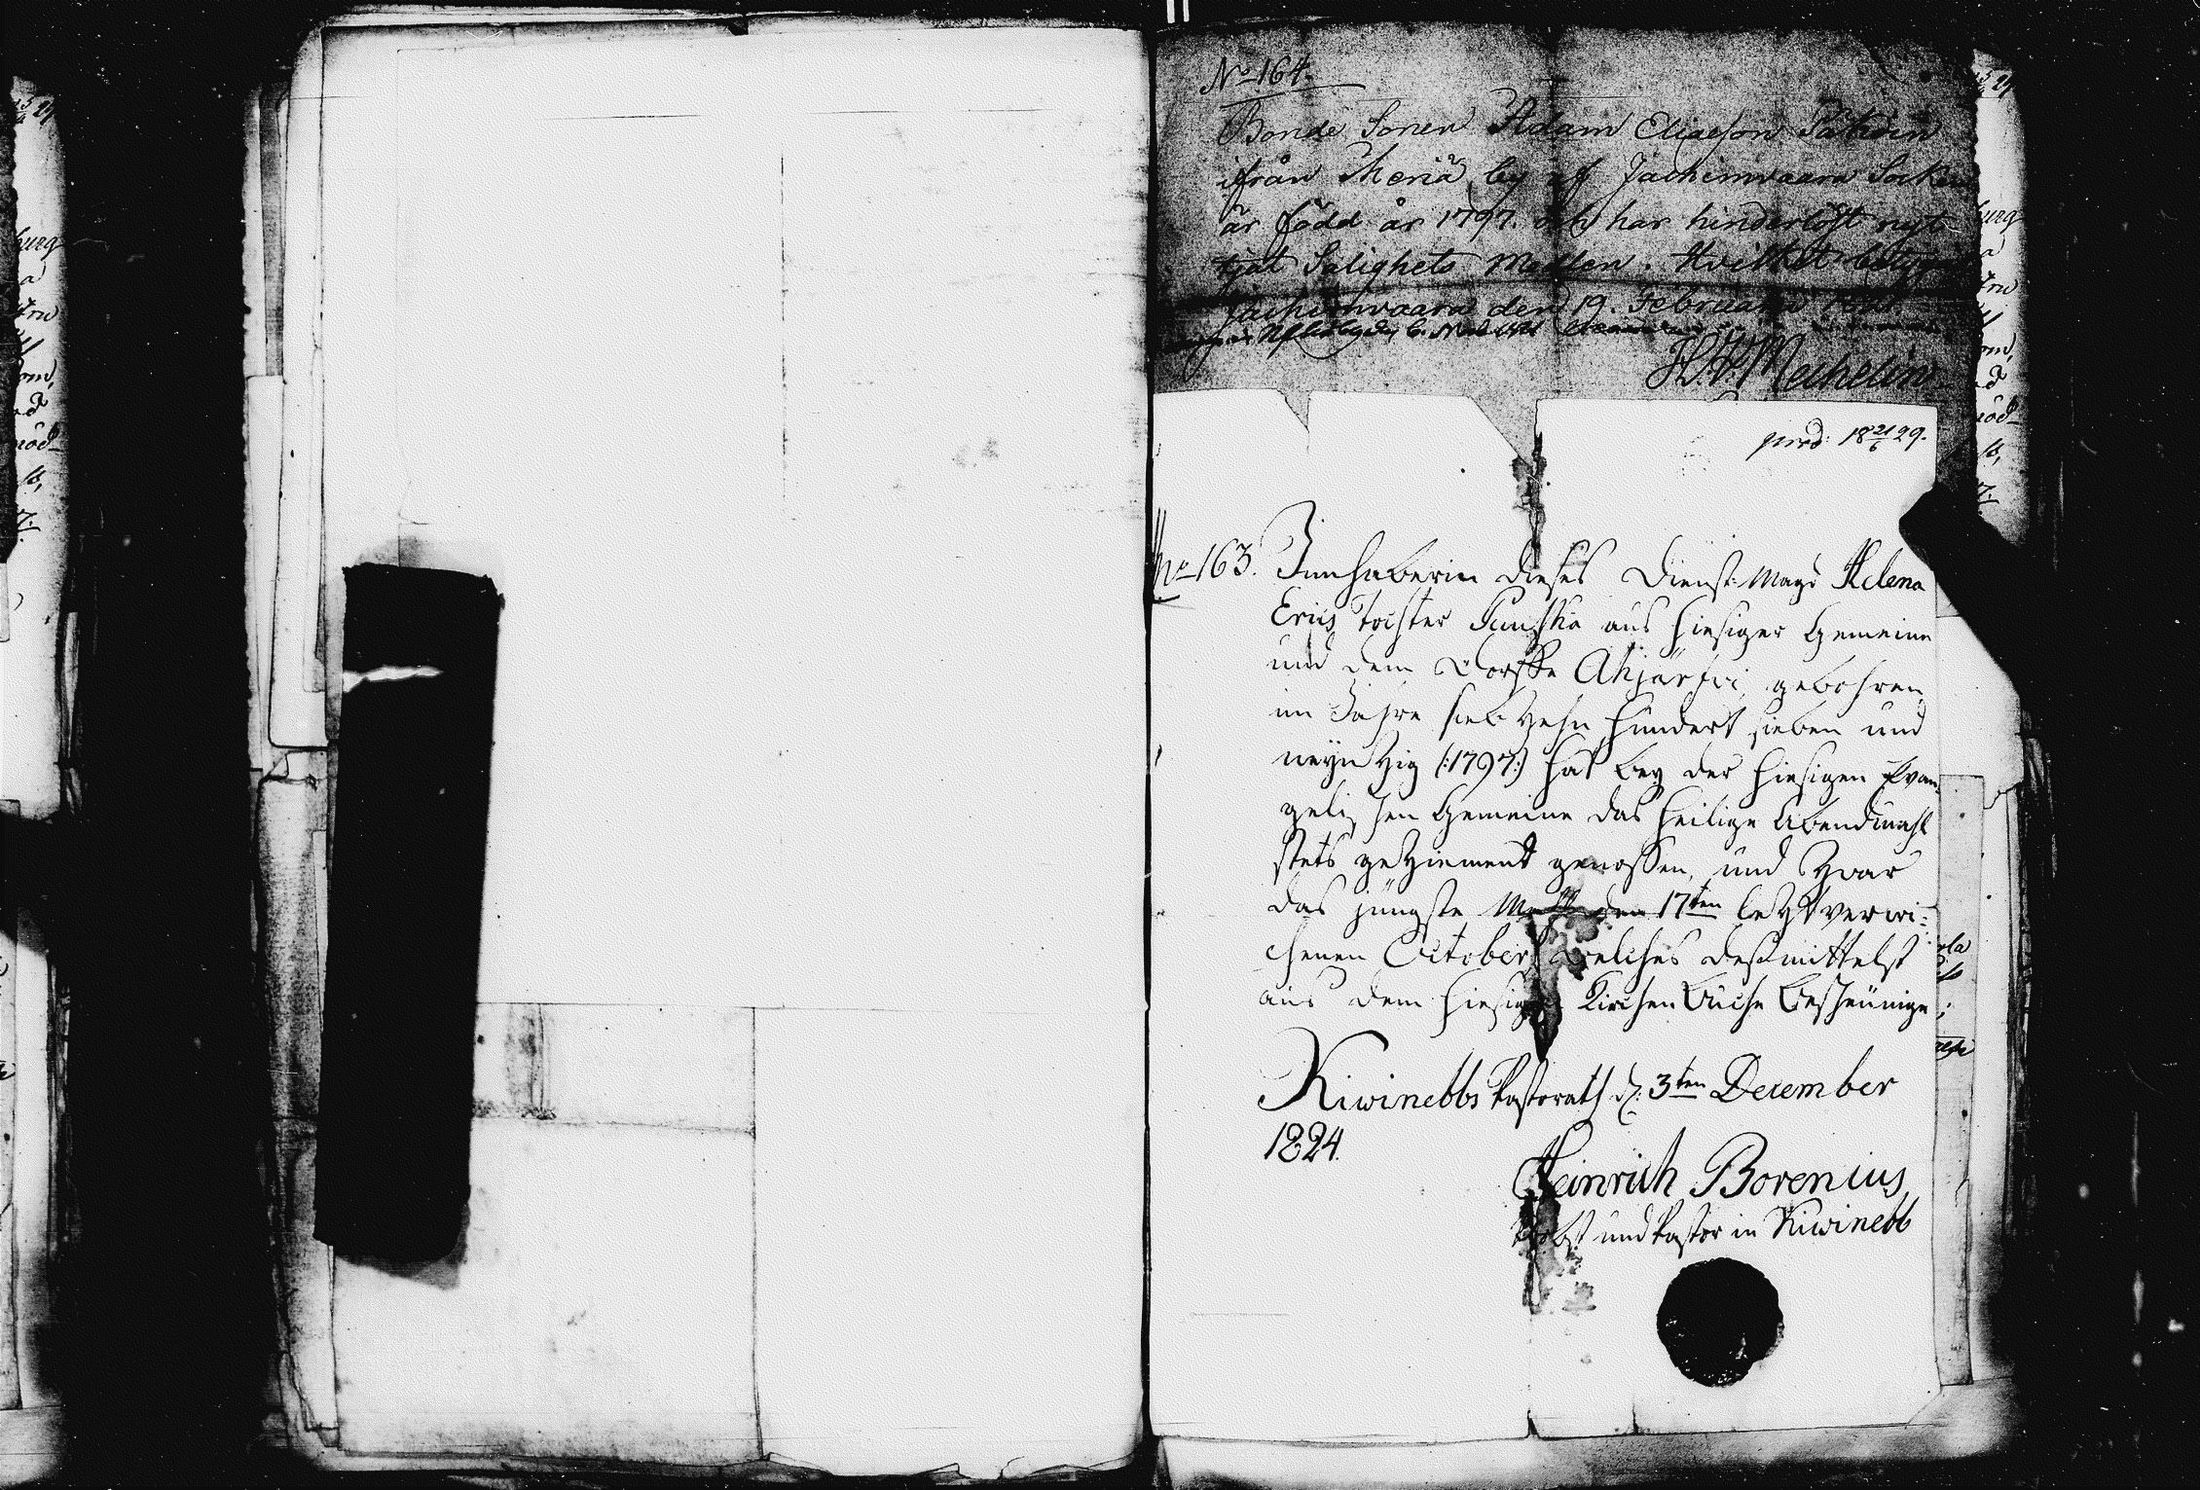 No 164.
Bonde Sonen Adam Eliaeson
ifrån Meriä by af Jaakimvaara Socken
är född år 1797. och har hinderlöst nytt-
jat Salighets Medlen. Hvilket betygar
Jaakimvaara den 19. Februarii
H. J. Mechelin
prod: 18 21/6 29.
No 163. Innhaberin dieses Dienst-Magd Helena
Erics tochter aus hiesiger Gemeine
und dem Dorffe Ahjärfvi, gebohren
im Jahre siebzehn hundert sieben und
neynzig (:1797:) hat bey der hiesigen Evan-
gelischen Gemeine das heilige Abendmahl
stets geziemend genossen, und zwar
das jüngste den 17ten letztverwi-
chenen October, welches desmittelst
aus dem hiesigen Kirchen Buche bescheinige;
Kiwinebbs Pastorath d: 3ten December
1824.
Heinrich Borenius,
Probst und Pastor in Kiwinebb